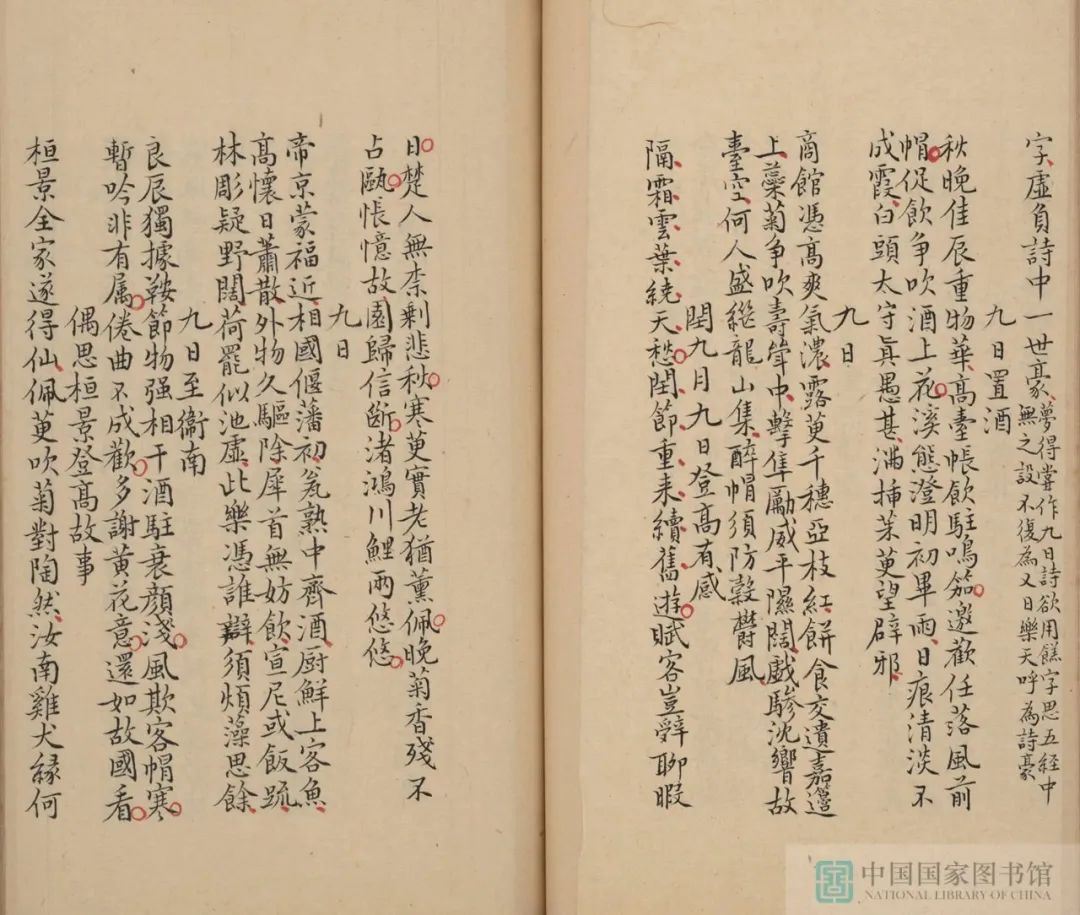 字虛負詩中一世豪夢得嘗作九日詩欲用餻字思五経中
無之設不復為又日樂天呼為詩豪
九日置酒
秋晚佳辰重物華高臺帳飲駐鳴笳邀歡任落風前
帽促飲爭吹酒上花溪態澄明初畢雨日痕清淡不
成霞白頭太守眞愚甚滿揷茱萸望辟邪
九日
商館憑高爽氣濃露萸千穗亞枝紅餅食交遺嘉籩
上蘂菊爭吹壽斝中擊隼勵威平隰闊戲驂沈響故
臺空何人盛繼龍山集醉帽須防縠欝風
閏九月九日登高有感
隔霜雲葉繞天愁閏節重来續舊遊賦客豈辤聊暇
日楚人無柰剩悲秋寒萸實老猶薰佩晚菊香殘不
占甌悵憶故園歸信斷渚鴻川鯉兩悠悠
九日
帝京蒙福近相國偃藩初瓮熟中齊酒厨鮮上客魚
高懷日蕭散外物久驅除犀首無妨飲宣尼或飯疏
林彫疑野闊荷罷似池虛此樂憑誰辯須煩藻思餘
九日至衞南
良辰獨據鞍節物强相干酒駐衰顔淺風欺客帽寒
暫吟非有属倦曲不成歡多謝黄花意還如故國看
偶思桓景登高故事
桓景全家遂得仙佩萸吹菊對陶然汝南雞犬緣何
中国国家图书馆
NATIONAL LIBRARY OF CHINA